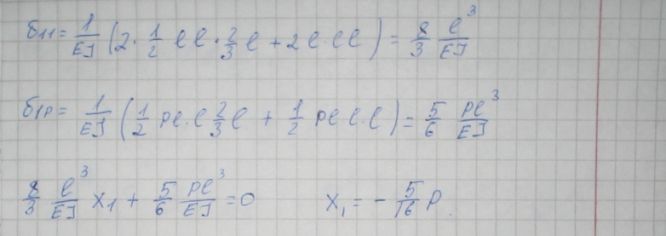 δ11 = 1/EJ (2 · 1/2 ℓℓ · 2/3 ℓ + 2ℓ · ℓℓ) = 8/3 ℓ³/EJ
δ1P = 1/EJ (1/2 Pℓ · ℓ 2/3 ℓ + 1/2 Pℓ ℓ · ℓ) = 5/6 Pℓ³/EJ
8/3 ℓ³/EJ X1 + 5/6 Pℓ³/EJ = 0 X1 = - 5/16 P.